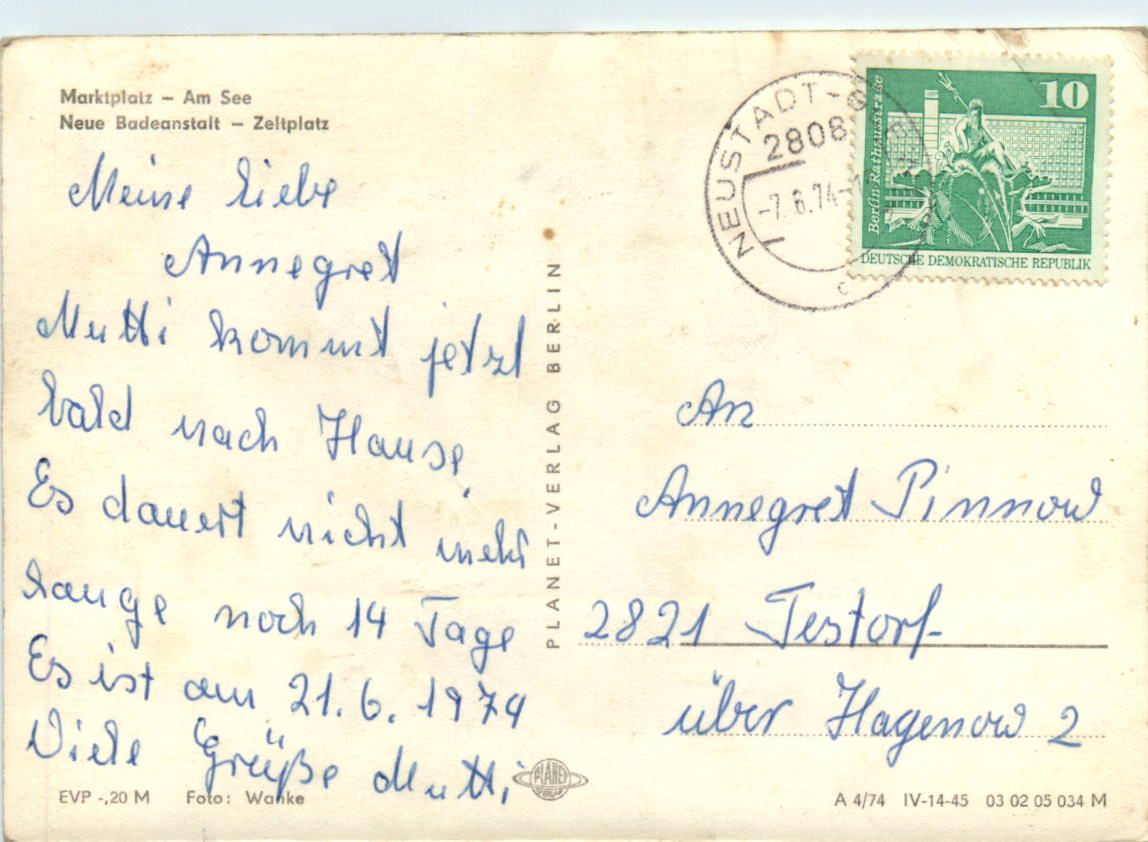 Marktplatz – Am See
Neue Badeanstalt – Zeltplatz
Meine liebe
Annegret
Mutti kommt jetzt
bald nach Hause.
Es dauert nicht mehr
lange noch 14 Tage
Es ist am 21.6.1974
Viele Grüße Mutti
EVP -,20 M Foto: Wanke
PLANET-VERLAG BERLIN
PLANET
VERLAG
NEUSTADT-G
2808
-7.6.74-1
c
10
Berlin-Rathausstraße
DEUTSCHE DEMOKRATISCHE REPUBLIK
An
Annegret Pinnow
2821 Testorf
über Hagenow 2
A 4/74 IV-14-45 03 02 05 034 M